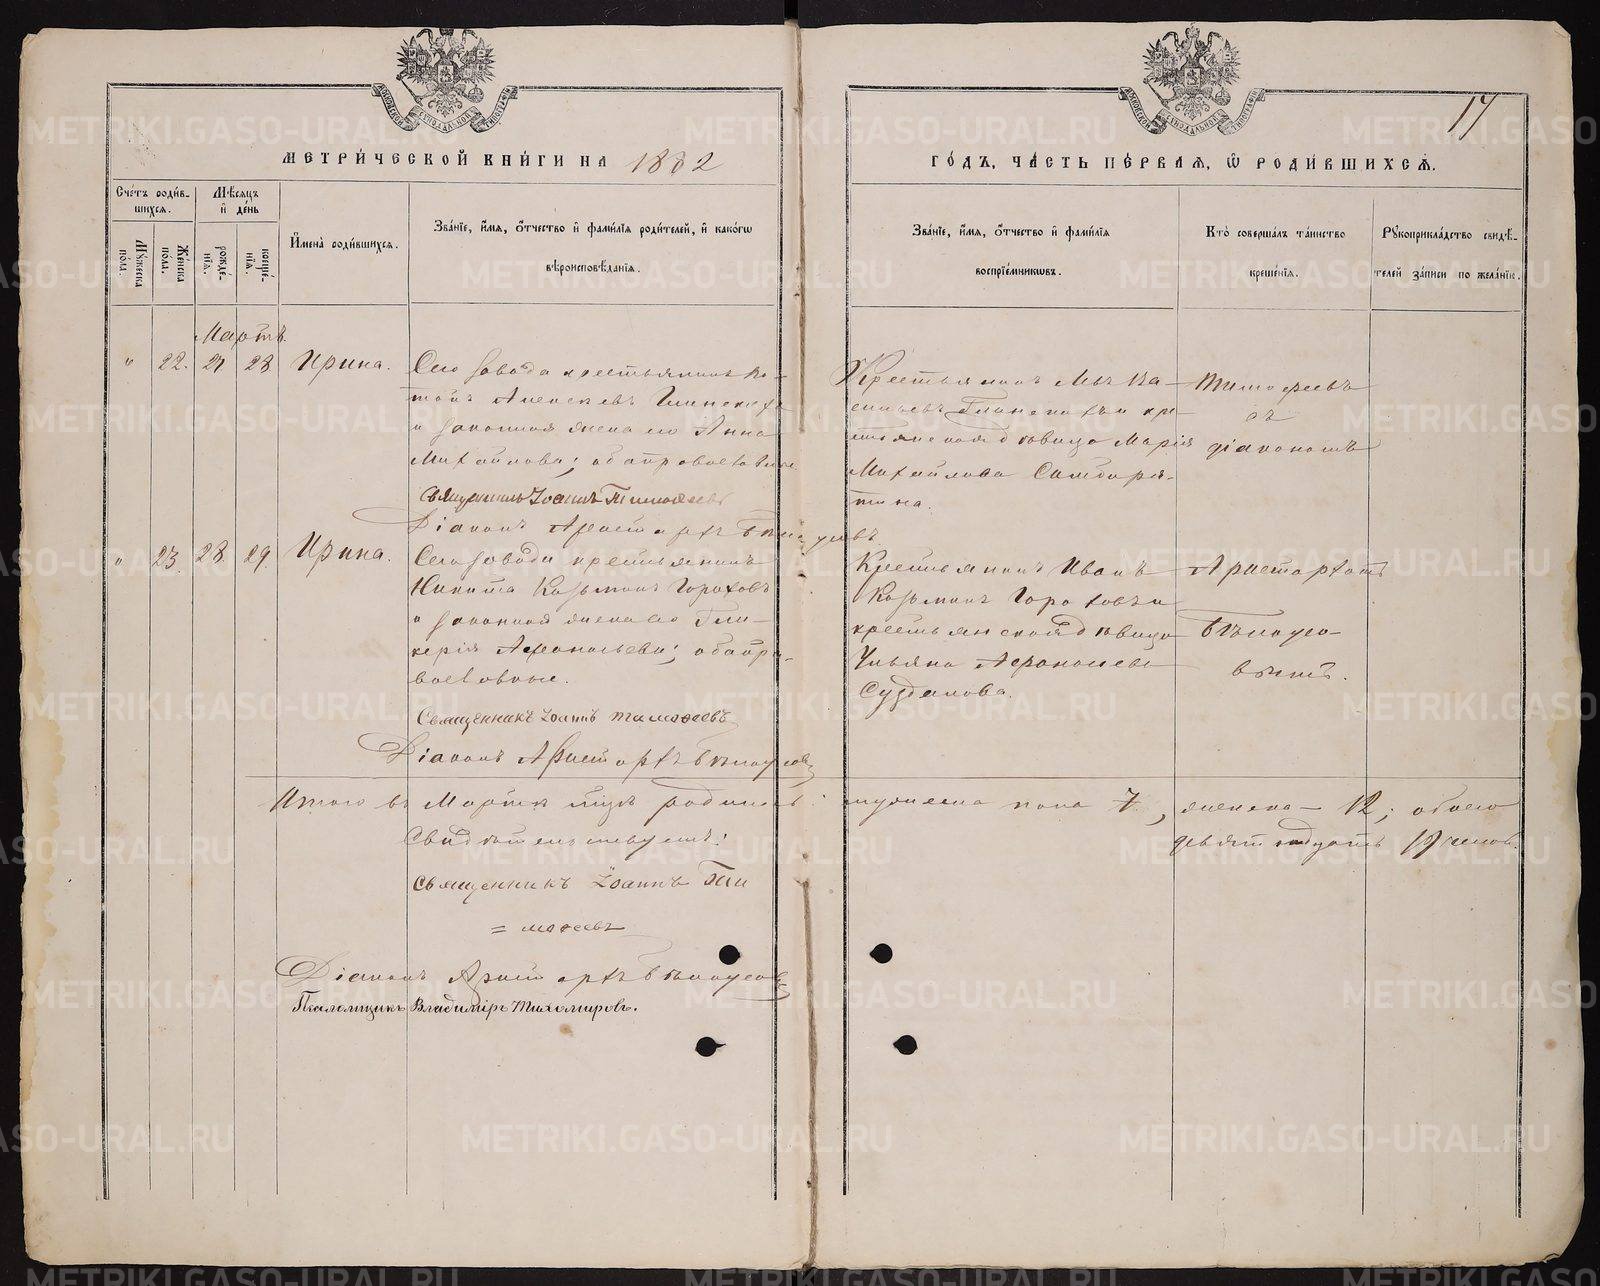 17
МЕТРИ́ЧЕСКОЙ КНИ́ГИ НА 1882
ГО́ДЪ, ЧА́СТЬ ПЕ́РВАЯ, Ѿ РОДИ́ВШИХСЯ.
Сче́тъ роди́в-
шихся.
Мѣсяцъ
и де́нь
Му́жеска по́ла.
Же́нска по́ла.
рожде́-
нїя.
креще́-
нїя.
И́мена роди́вшихся.
Зва́нїе, и́мя, о́тчество и фами́лїя роди́телей, и како́гѡ
вѣроисповѣ́данїя.
Зва́нїе, и́мя, о́тчество и фами́лїя
воспрїе́мникѡвъ.
Кто̀ соверша́лъ та́инство
креще́нїя.
Рꙋкоприкла́дство свидѣ́-
телей за́писи по жела́нїю.
Мартъ.
" 22. 27 28 Ирина.
Сего завода крестьянинъ
Алексеевъ
и законная жена его Анна
Михайлова; оба православные
Священникъ Іоаннъ Тимофеевъ
Діаконъ Аристархъ Бѣлоусовъ
Крестьянинъ Ва-
сильевъ и кре-
стьянская дѣвица Марія
Михайлова
Тимофеевъ
съ
діакономъ
" 23. 28. 29. Ирина.
Сего завода крестьянинъ
Никита Козьминъ Гороховъ
и законная жена его Гли-
керія Афанасьева; оба пра-
вославные.
Священникъ Іоаннъ Тимофеевъ
Діаконъ Аристархъ Бѣлоусовъ
Крестьянинъ Иванъ
Козьминъ Гороховъ и
крестьянская дѣвица
Ульяна Афанасьева
Суздалова.
Аристархомъ
Бѣлоусо-
вымъ.
Итого въ Мартѣ мцѣ родилось: мужеска пола 7, женска – 12; обоего
девятнадцать 19 челов.
Свидѣтельствуемъ:
Священникъ Іоаннъ Ти
= мофеевъ
Діаконъ Аристархъ Бѣлоусовъ
Псаломщикъ Владиміръ Тихомировъ.
METRIKI.GASO-URAL.RU